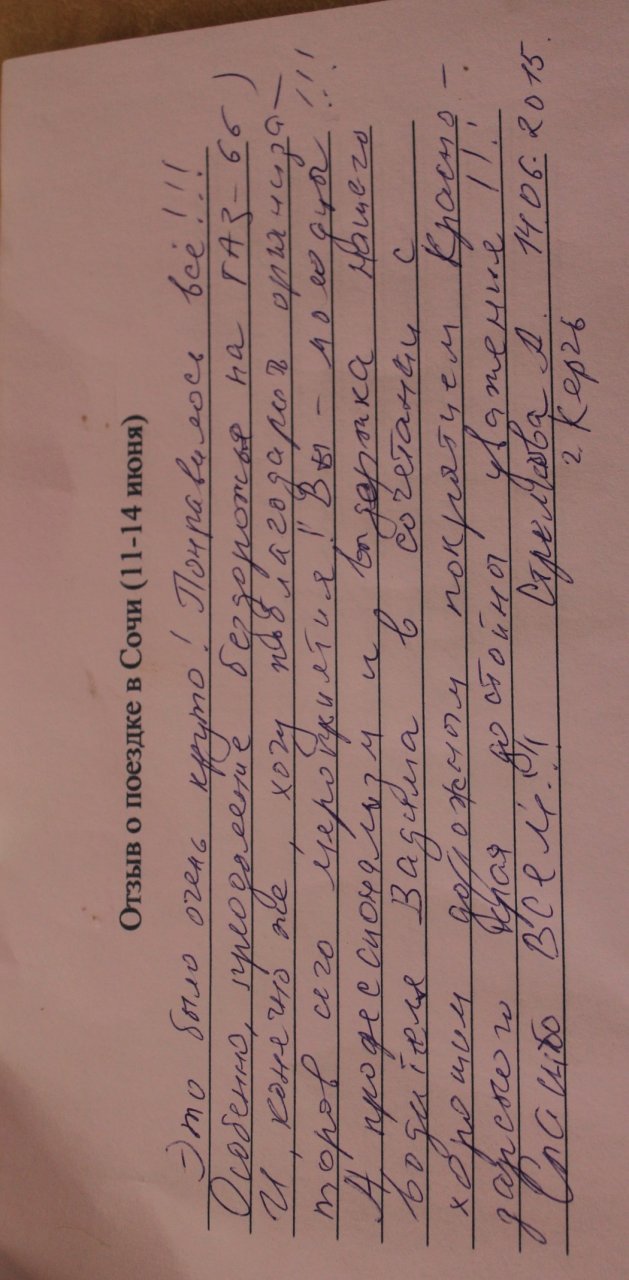 Отзыв о поездке в Сочи (11-14 июня)
Это было очень круто! Понравилось всё!!!
Особенно, преодоление бездорожья на ГАЗ-66)
И, конечно же, хочу поблагодарить организа-
торов сего мероприятия! Вы - молодцы!!!
А, профессионализм и выдержка нашего
водителя Вадима в сочетании с
хорошим дорожным покрытием Красно-
дарского края достойны уважения!!!
Спасибо ВСЕМ! 14.06.2015.
г. Керчь